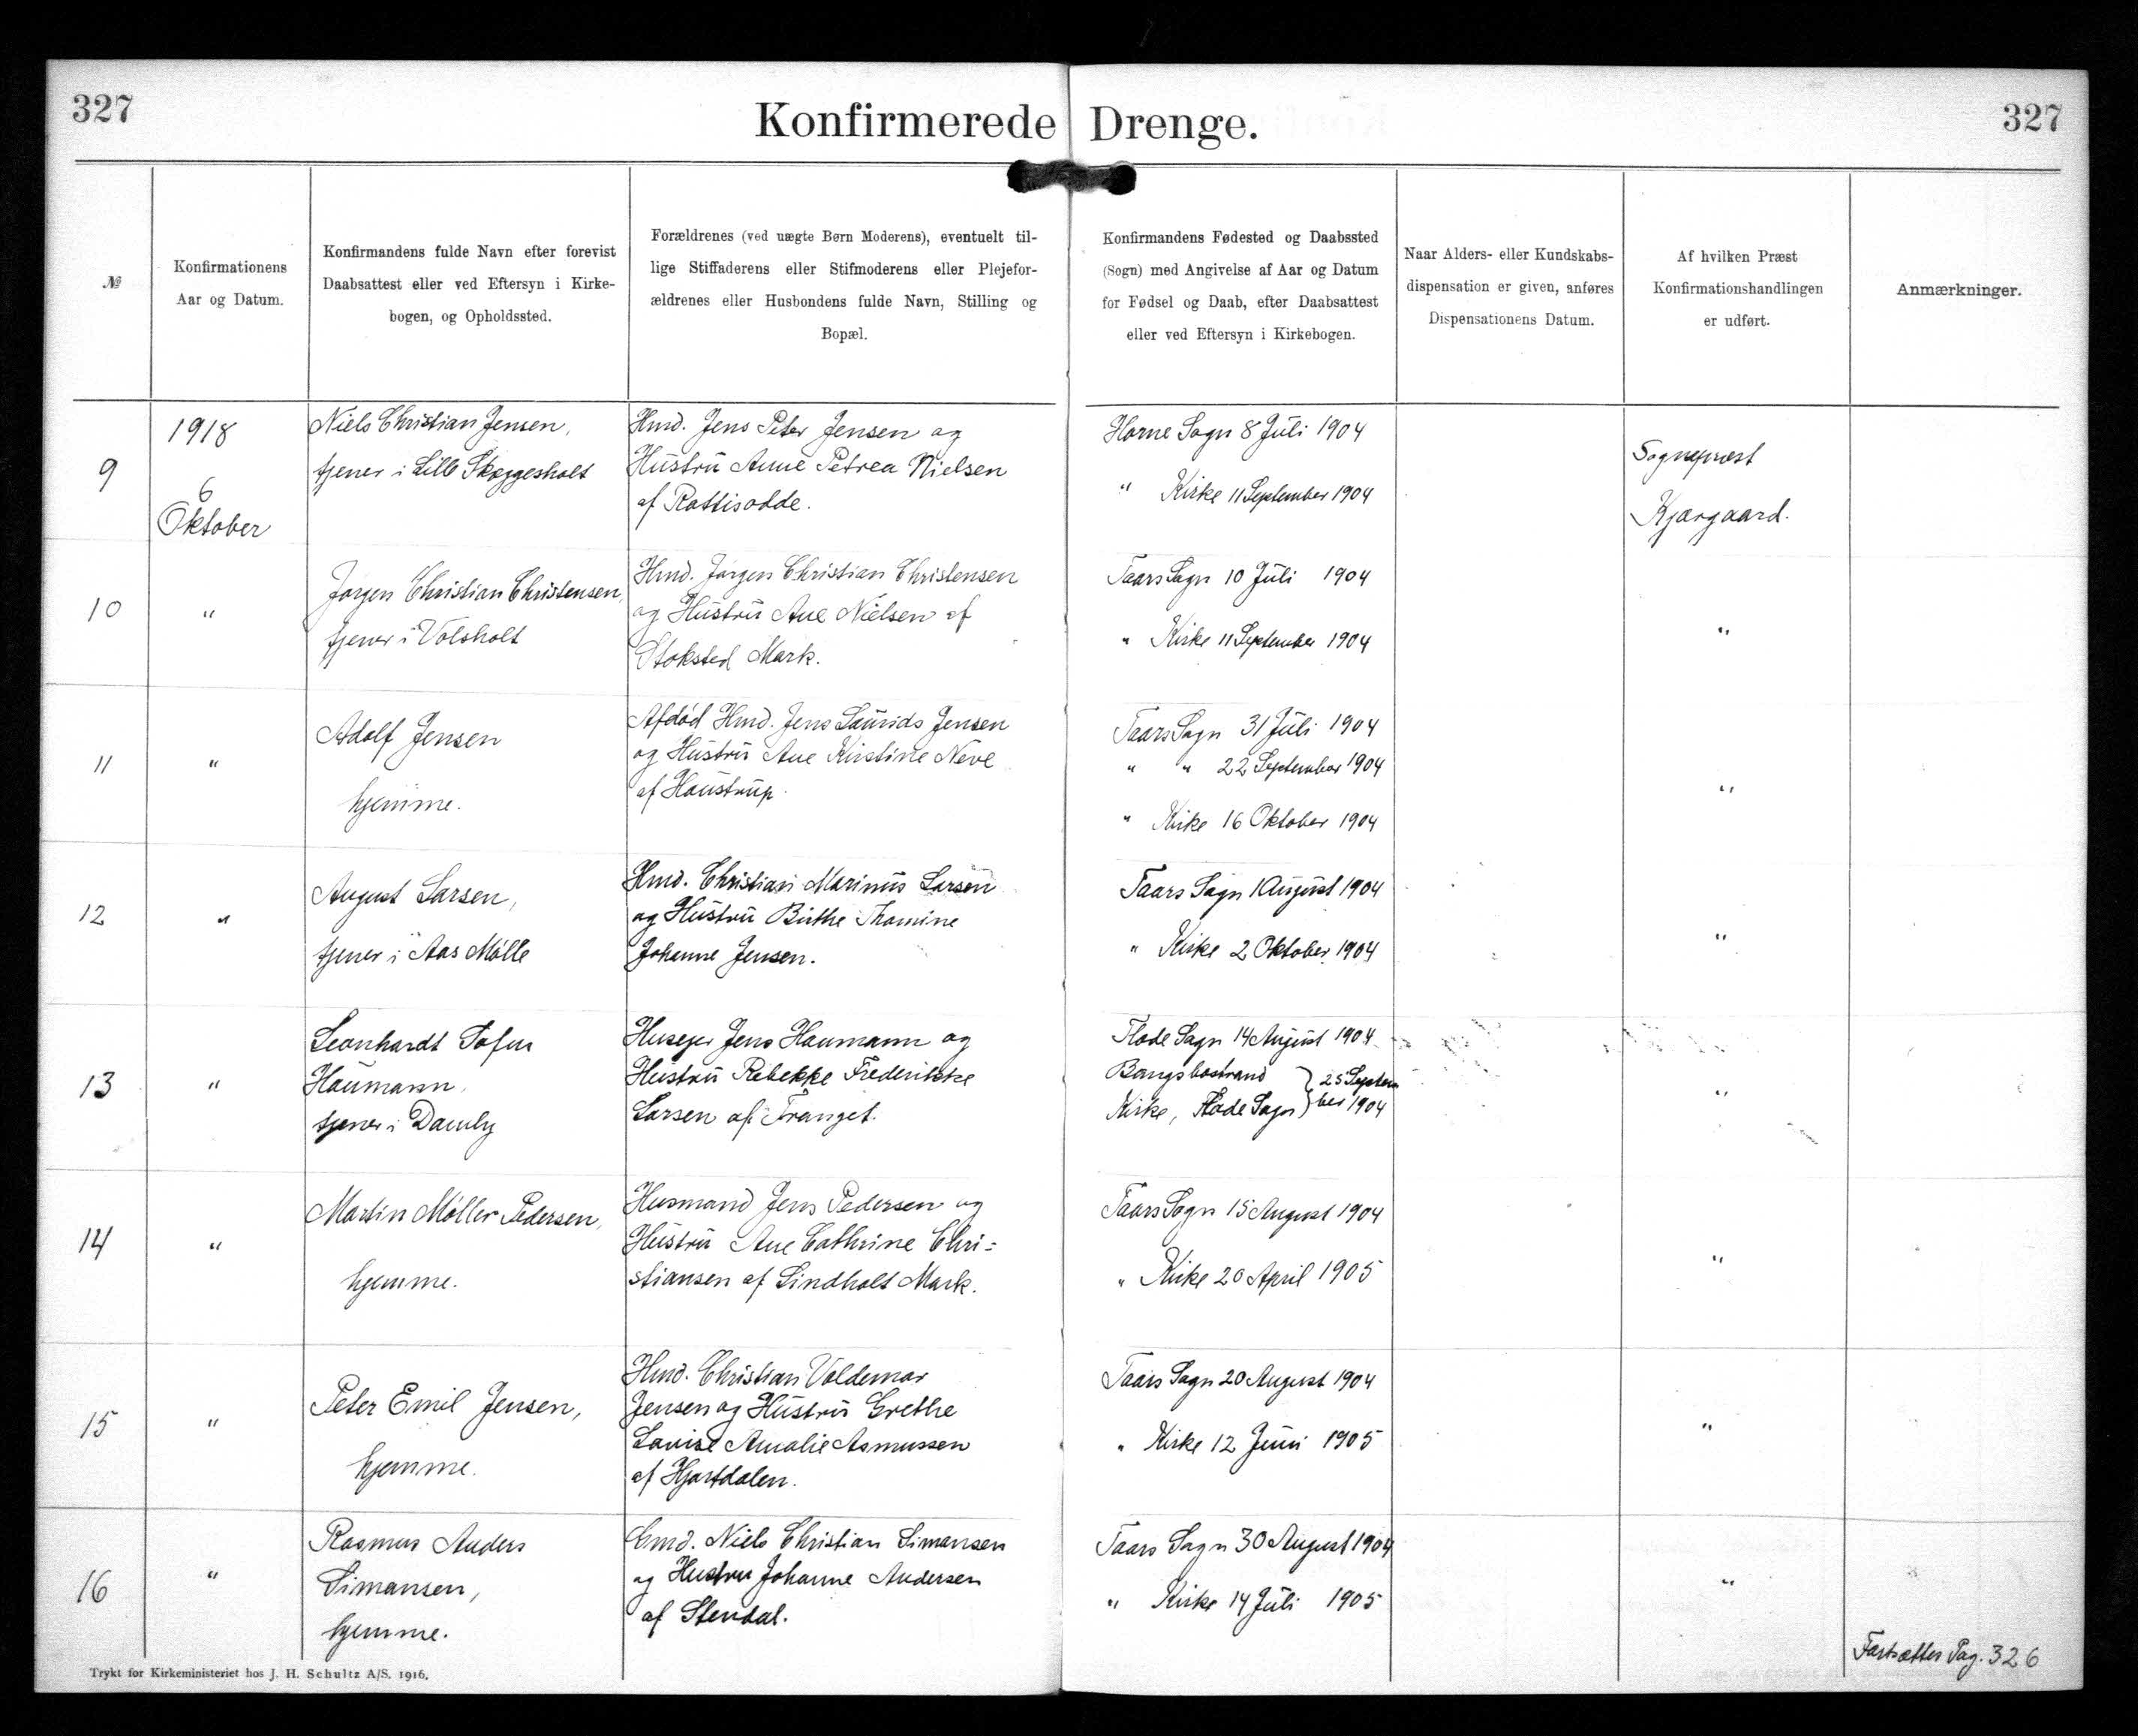 327
Konfirmerede Drenge.
327
№
Konfirmationens
Aar og Datum.
Konfirmandens fulde Navn efter forevist
Daabsattest eller ved Eftersyn i Kirke-
bogen, og Opholdssted.
Forældrenes (ved uægte Børn Moderens), eventuelt til-
lige Stiffaderens eller Stifmoderens eller Plejefor-
ældrenes eller Husbondens fulde Navn, Stilling og
Bopæl.
Konfirmandens Fødested og Daabssted
(Sogn) med Angivelse af Aar og Datum
for Fødsel og Daab, efter Daabsattest
eller ved Eftersyn i Kirkebogen.
Naar Alders- eller Kundskabs-
dispensation er given, anføres
Dispensationens Datum.
Af hvilken Præst
Konfirmationshandlingen
er udført.
Anmærkninger.
9
1918
6
Oktober
Niels Christian Jensen,
tjener i Lille Skæggesholt
Hmd. Jens Peter Jensen og
Hustru Anne Petrea Nielsen
af
Horne Sogn 8 Juli 1904
" Kirke 11 September 1904
Sognepræst
Kjærgaard.
10
"
Jørgen Christian Christensen,
tjener i Volsholt
Hmd. Jørgen Christian Christensen
og Hustru Ane Nielsen af
Stoksted Mark.
Taars Sogn 10 Juli 1904
" Kirke 11 September 1904
"
11
"
Adolf Jensen
hjemme.
Afdød Hmd. Jens Laurids Jensen
og Hustru Ane Kirstine Neve
af Haustrup.
Taars Sogn 31 Juli 1904
" " 22 September 1904
" Kirke 16 Oktober 1904
"
12
"
August Larsen,
tjener i Aas Mølle
Hmd. Christian Marinus Larsen
og Hustru Birthe Thomine
Johanne Jensen.
Taars Sogn 1 August 1904
" Kirke 2 Oktober 1904
"
13
"
Leonhardt Tofus
Haumann,
tjener i Damby
Husejer Jens Haumann og
Hustru Rebekke Frederikke
Larsen af Tranget.
Flade Sogn 14 August 1904
Bangsbostrand } 25 Septem
Kirke, Flade Sogn } ber 1904
"
14
"
Martin Møller Pedersen,
hjemme.
Husmand Jens Pedersen og
Hustru Ane Cathrine Chri=
stiansen af Lindholt Mark.
Taars Sogn 15 August 1904
" Kirke 20 April 1905
"
15
"
Peter Emil Jensen,
hjemme.
Hmd. Christian Valdemar
Jensen og Hustru Grethe
Lovise Amalie Asmussen
af Hjortdalen.
Taars Sogn 20 August 1904
" Kirke 12 Juni 1905
"
16
"
Rasmus Anders
Simonsen,
hjemme.
Gmd. Niels Christian Simonsen
og Hustru Johanne Andersen
af Stendal.
Taars Sogn 30 August 1904
" Kirke 14 Juli 1905
"
Fortsættes Pag. 326
Trykt for Kirkeministeriet hos J. H. Schultz A/S. 1916.